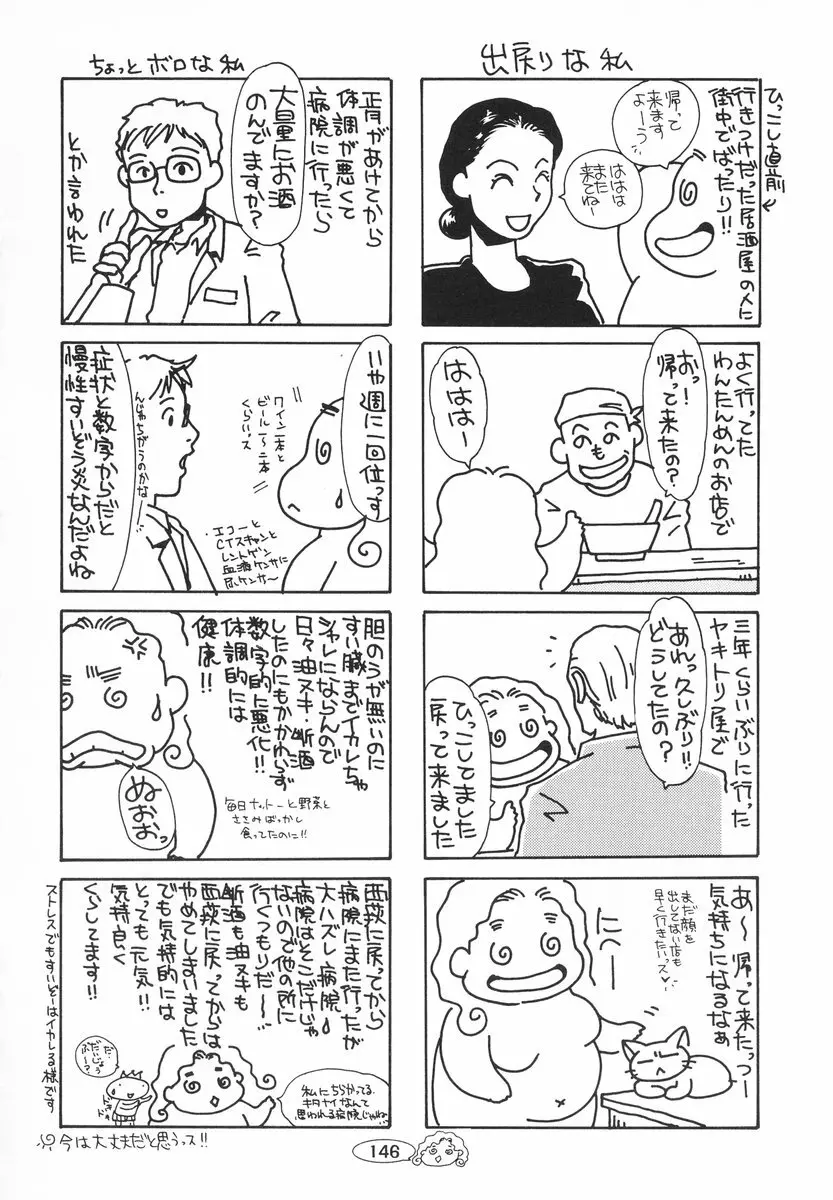 出戻りな私
ひっこし直前
行きつけだった居酒屋の人に
街中でばったり!!
帰って
来ます
よーう
ははは
また
来てねー
よく行ってた
わんたんめんのお店で
おっ!
帰って来たの?
はははー
三年くらいぶりに行った
ヤキトリ屋で
あれっ久しぶり!!
どうしてたの?
ひっこしてました
戻って来ました
あ〜帰って来たっつー
気持ちになるなぁ
まだ顔を
出してない店も
早く行きたいっス♡
にへー
ちょっとボロな私
正月があけてから
体調が悪くて
病院に行ったら
大量にお酒
のんでますか?
とか言われた
いや週に一回位っす
ワイン一本と
ビール1〜2本
くらいっス
・エコーと
CTスキャンと
レントゲン
血液ケンサに
尿ケンサ〜
んじゃちがうのかなー
症状と数字からだと
慢性すいぞう炎なんだよね
胆のうが無いのに
すい臓までイカレちゃ
シャレにならんので
日々油ヌキ・断酒
したのにもかかわらず
数字的に悪化!!
体調的には
健康!!
毎日ナットーと野菜と
ささみばっかし
食ってたのに!!
ぬおおっ
西荻に戻ってから
病院にまた行ったが
大ハズレ病院
病院はそこだけじゃ
ないので他の所に
行くつもりだ〜〜
断酒も油ヌキも
西荻に戻ってからは
やめてしまいました
でも気持的には
とっても元気!!
気持良く
くらしてます!!
だ…
だいじょう
ぶ〜?
私にちらかってる
キタナイなんて
思われる病院じゃね
ストレスでもすいぞーはイカレる様です
今は大丈夫だと思うっス!!
146